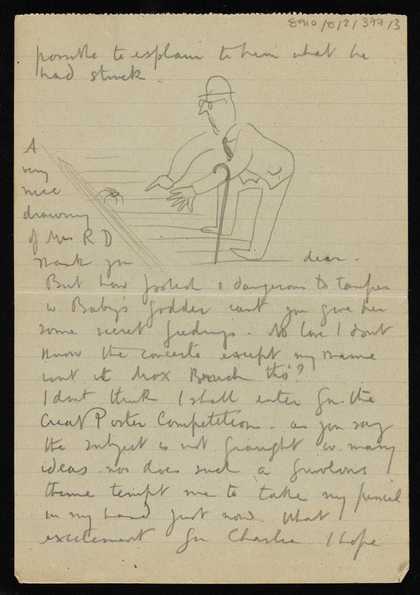 8910/0/2/399/3
possible to explain to him what he
had struck.
A
very
nice
drawing
of Mr R D
thank you dear.
But how foolish & dangerous to tamper
w Baby's fodder cant you give her
some secret feedings. No love I dont
know the concerto except my name
wont it Max Bruch tho'?
I dont think I shall enter for the
Great Poster Competition. as you say
the subject is not fraught w many
ideas nor does such a frivolous
theme tempt me to take my pencil
in my hand just now. What
excitement for Charlie I hope